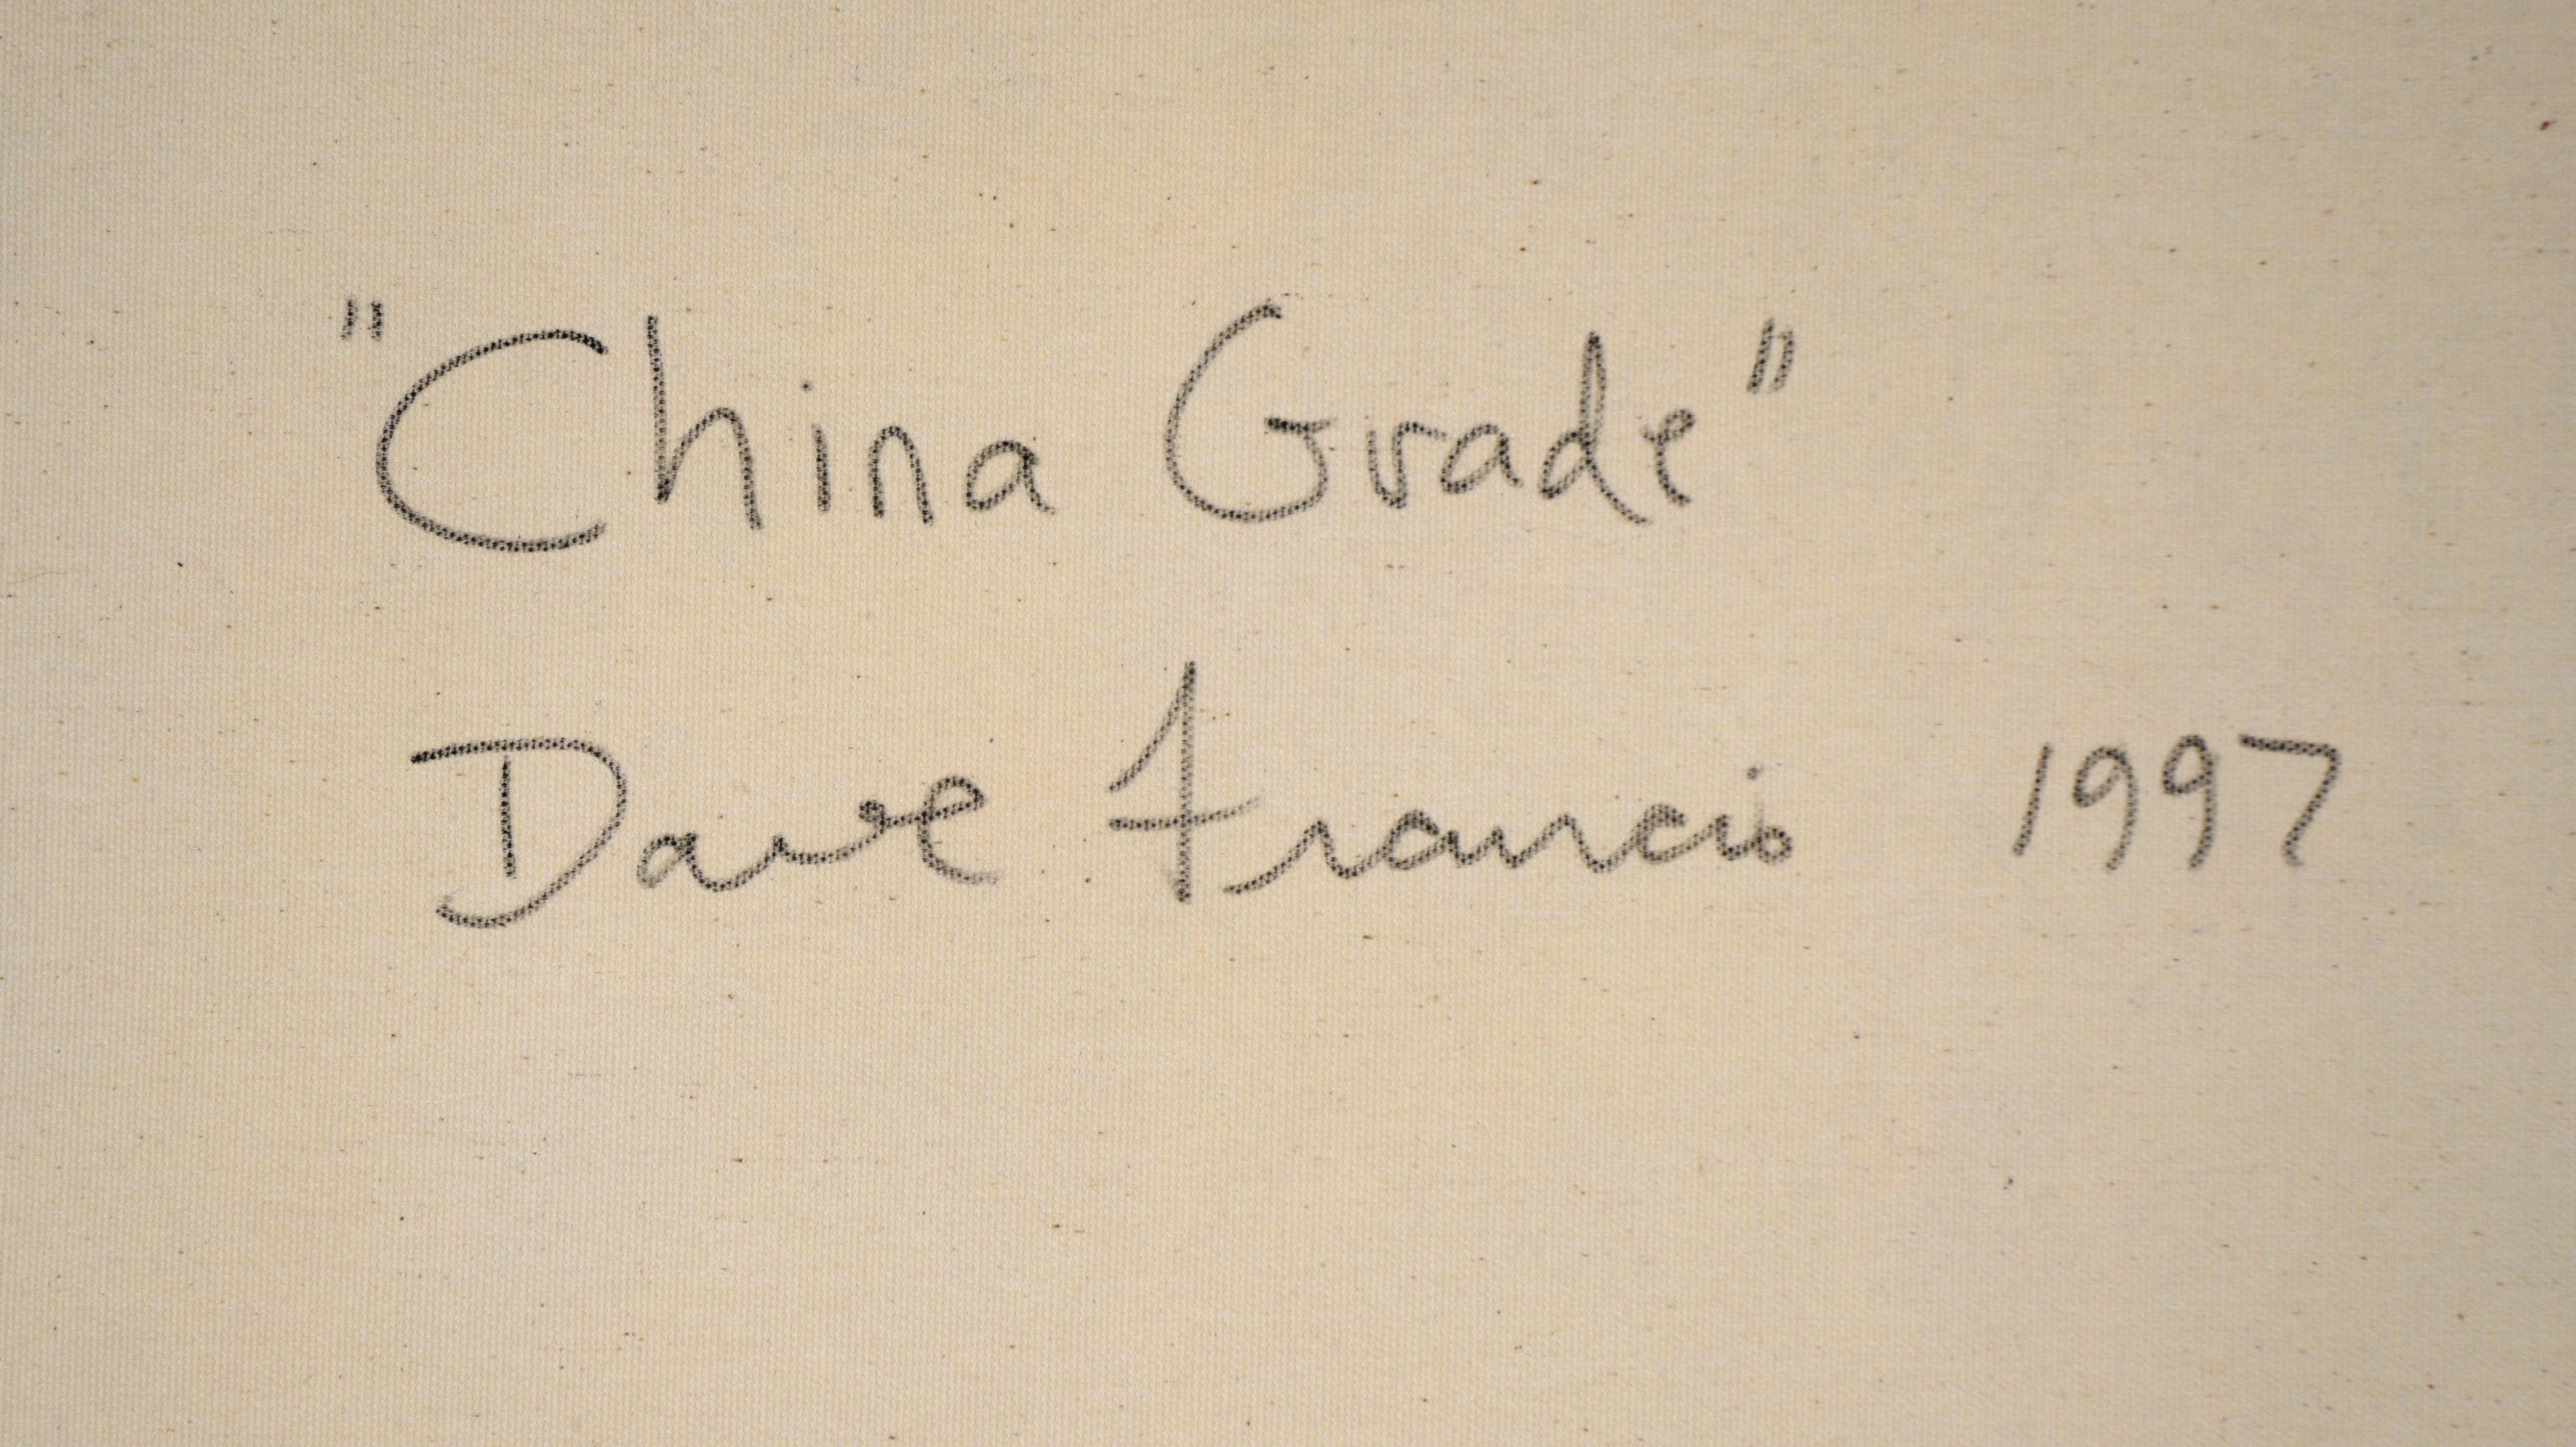 "China Grade"
Dave Francis 1997